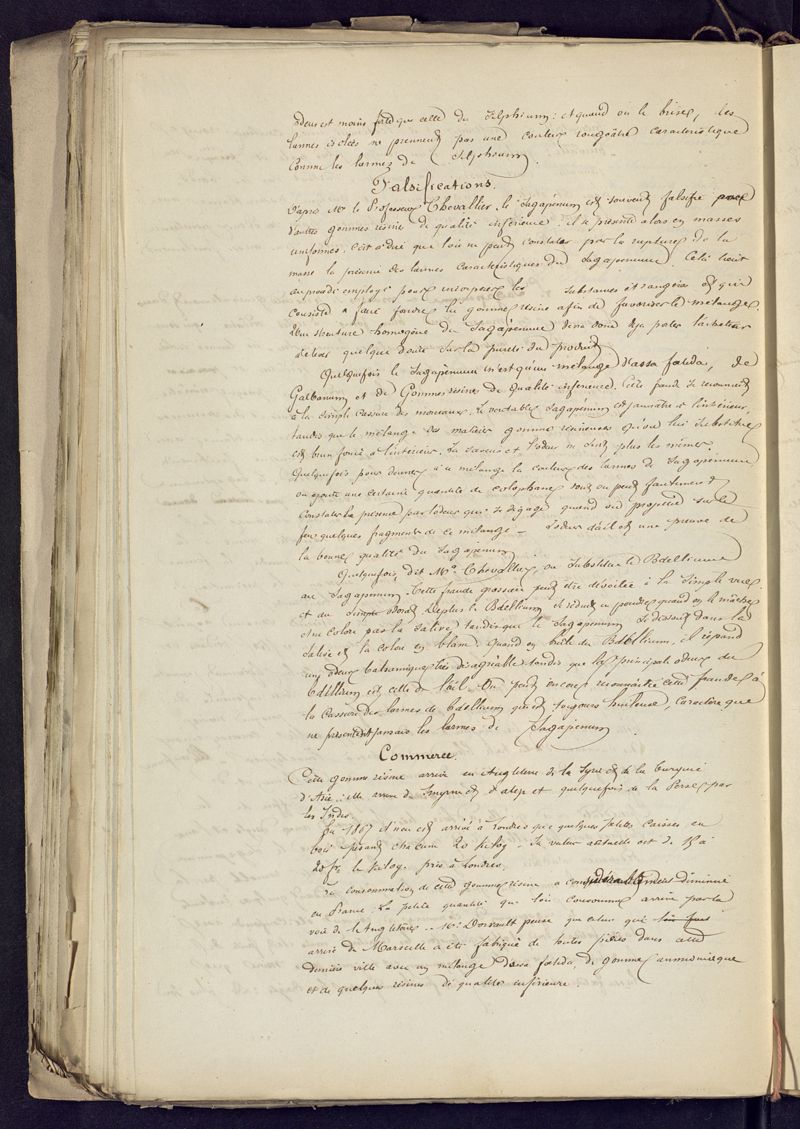 odeur est moins fade que celle du Silphium : et quand on le brise, les
larmes isolées ne prennent pas une couleur rougeâtre caractéristique
comme les larmes de Silphium.
Falsifications.
D'après Mr le Professeur Chevallier, le Sagapenum est souvent falsifié avec
d'autres gommes résines de qualité inférieure. il se présente alors en masses
uniformes. c'est à dire que l'on ne peut constater par la rupture de la
masse la présence des larmes caractéristiques du Sagapenum. Cela tient
au procédé employé pour incorporer les substances étrangères et qui
consiste à faire fondre la gomme résine afin de favoriser le mélange.
Une texture homogène du Sagapenum devra donc déjà porter l'acheteur
à élever quelque doute sur la pureté du produit.
Quelquefois le Sagapenum n'est qu'un mélange d'assa foetida, de
Galbanum et de Gommes résines de qualité inférieure. Cette fraude se reconnait
à la simple cassure des morceaux. Le véritable Sagapenum est jaunâtre à l'intérieur,
tandis que le mélange des matières gommo résineuses qu'on lui substitue
est brun foncé à l'intérieur. La saveur et l'odeur ne sont plus les mêmes.
Quelquefois pour donner à ce mélange la couleur des larmes de Sagapenum
on ajoute une certaine quantité de colophane dont on peut facilement
constater la présence par l'odeur qui se dégage quand on projette sur le
feu quelques fragments de ce mélange – L'odeur d'ail est une preuve de
la bonne qualité du Sagapenum.
Quelquefois, dit Mr Chevallier, on substitue le Bdellium
au Sagapenum. Cette fraude grossière peut être dévoilée à la simple vue
et au simple De plus le Bdellium se réduit en poudre quand on le mâche
et ne colore pas la salive, tandis que le Sagapenum se dissout dans la
salive et la colore en blanc. Quand on brûle du Bdellium, il répand
une odeur balsamique très désagréable tandis que la principale odeur du
Bdellium est celle de l'ail. On peut encore reconnaître cette fraude à
la cassure des larmes de Bdellium qui est toujours huileuse, caractère que
ne présentent jamais les larmes de Sagapenum.
Commerce.
Cette gomme résine arrive en Angleterre de la Syrie et de la turquie
d'Asie ; elle arrive de Smyrne et d'alep et quelquefois de la Perse par
les Indes.
En 1867 il n'en est arrivé à Londres que quelques petites caisses en
bois pesant chacune 20 kilog. Sa valeur actuelle est de 15 à
20 fr. le kilog. pris à Londres.
La consommation de cette gomme résine a considérablement diminué
en France. La petite quantité que l'on consomme arrive par la
voie de l'Angleterre. Mr Dorvault pense que celui qui
arrive de Marseille a été fabriqué de toutes pièces dans cette
dernière ville avec un mélange d'assa foetida, de gomme ammoniaque
et de quelques résines de qualité inférieure